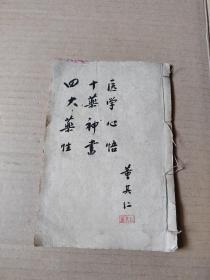 医学心悟
十药神书
四大药性
董其仁